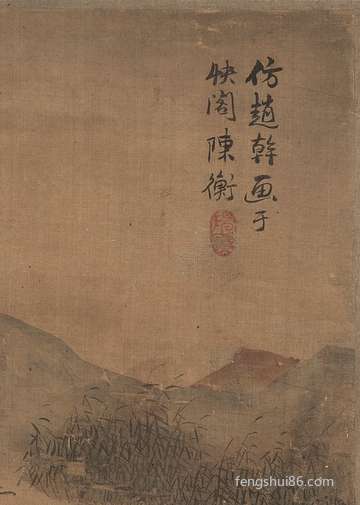 仿趙幹画于
快阁陳衡
fengshui86.com